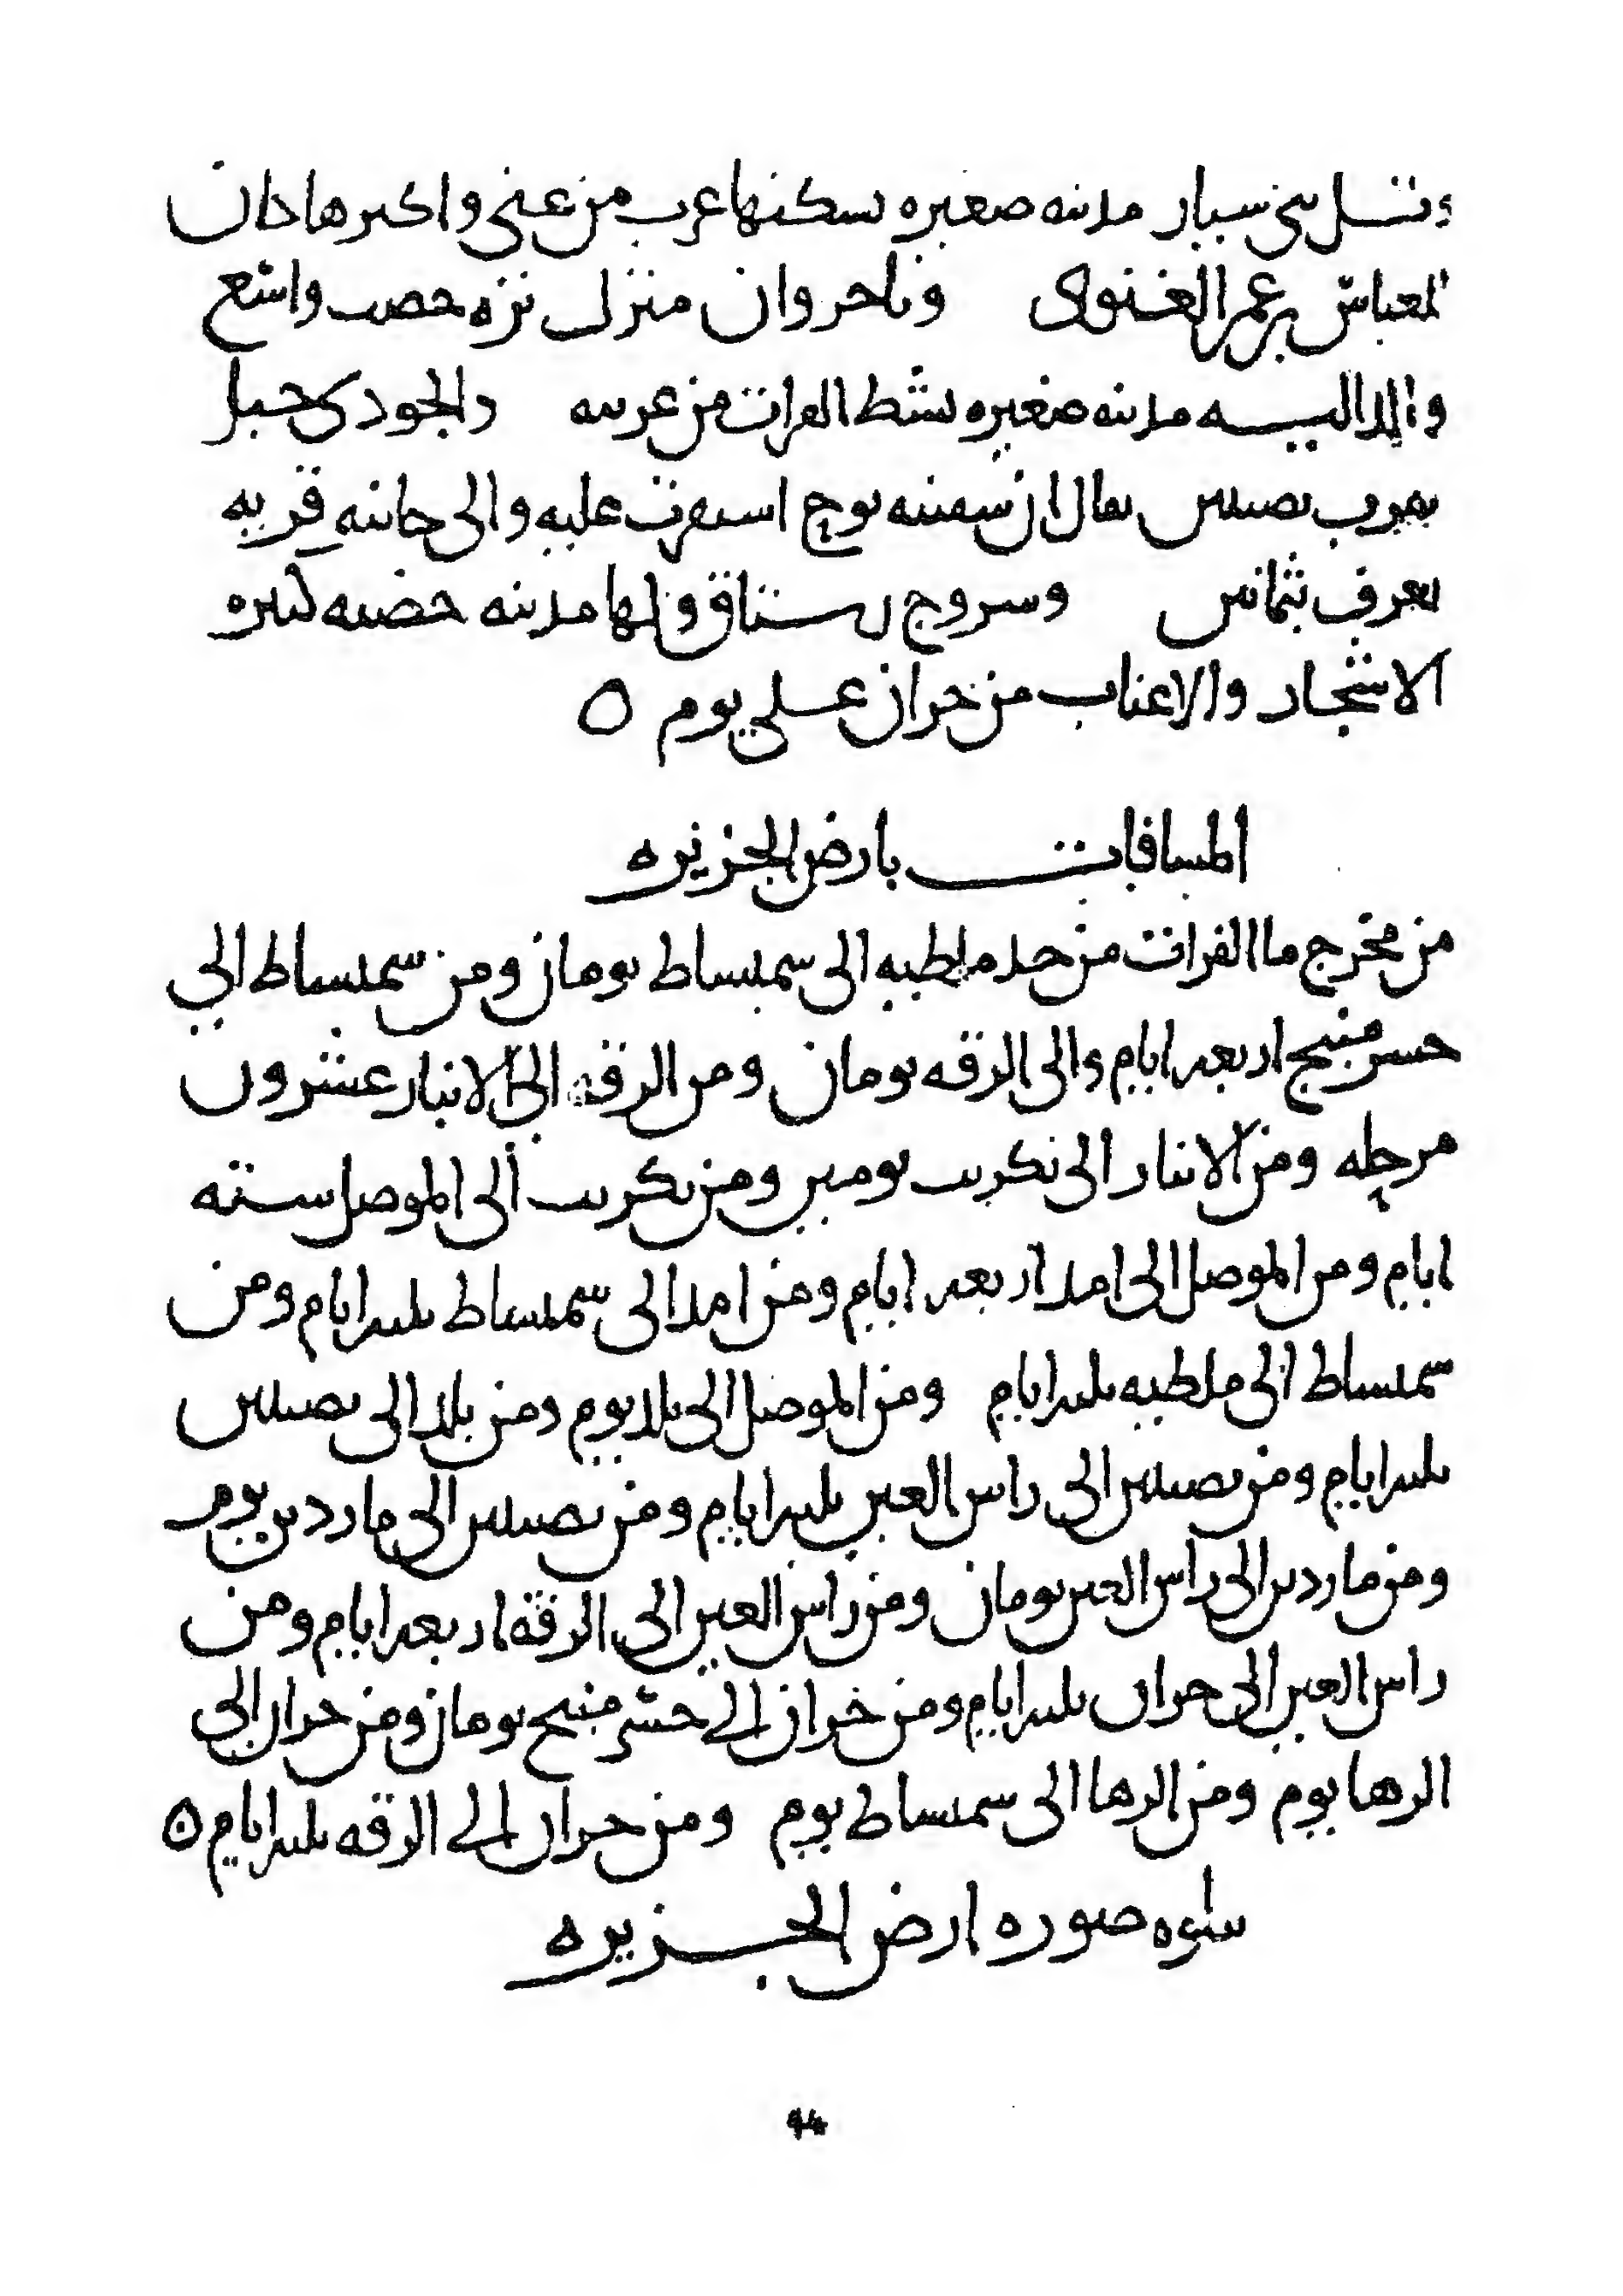 وتل بنى سيار مدينه صغيره يسكنها عرب من غنى واكثرها كان
للعباس بن عمر الغنوى وباجروان منزل نزه خصب واسع
والداليـــه مدينه صغيره بشط الفرات من غربيه والجودى جبل
بقرب نصيبين يقال ان سفينه نوح استوت عليه والى جانبه قريه
تعرف بثمانين وسروج رستاق ولها مدينه خصبه كثيره
الاشجار والاعناب من حران على يوم ٥
المسافات بارض الجزيره
من مخرج ما الفرات من حد ملطيه الى سميساط يومان ومن سميساط الى
جسر منبج اربعه ايام والى الرقه يومان ومن الرقه الى الانبار عشرون
مرحله ومن الانبار الى تكريت يومين ومن تكريت الى الموصل سته
ايام ومن الموصل الى امد اربعه ايام ومن امد الى سميساط ثلثه ايام ومن
سميساط الى ملطيه ثلثه ايام ومن الموصل الى بلد يوم ومن بلد الى نصيبين
ثلثه ايام ومن نصيبين الى راس العين ثلثه ايام ومن نصيبين الى ماردين يوم
ومن ماردين الى راس العين يومان ومن راس العين الى الرقه اربعه ايام ومن
راس العين الى حران ثلثه ايام ومن حران الى جسر منبج يومان ومن حران الى
الرها يوم ومن الرها الى سميساط يوم ومن حران الى الرقه ثلثه ايام ٥
يتلوه صوره ارض الجزيره
94